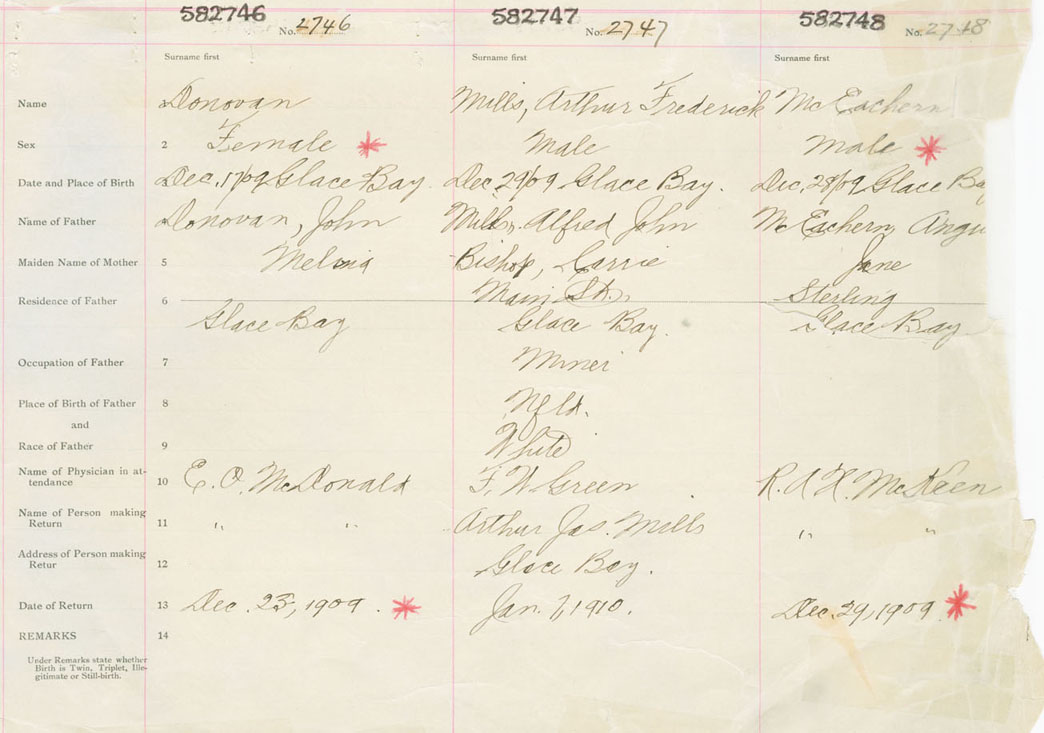 582746 582747 582748
No. 2746 No. 2747 No. 2748
Surname first Surname first Surname first
Name Donovan Mills, Arthur Frederick McEachern
Sex 2 Female Male Male
Date and Place of Birth Dec. 17/09 Glace Bay. Dec. 29/09 Glace Bay. Dec. 28/09 Glace Bay
Name of Father Donovan, John Mills, Alfred John McEachern, Angu
Maiden Name of Mother 5 Bishop, Carrie Jane
Residence of Father 6 Main St. Sterling
Glace Bay Glace Bay. Glace Bay
Occupation of Father 7 Miner
Place of Birth of Father 8 Nfld.
and
Race of Father 9 White
Name of Physician in at-
tendance 10 E. O. McDonald F. W Green R. A. H. McKeen
Name of Person making
Return 11 " " Arthur Jas. Mills " "
Address of Person making
Retur 12 Glace Bay.
Date of Return 13 Dec. 1909. Jan. 1910. Dec. 29, 1909
REMARKS 14
Under Remarks state whether
Birth is Twin, Triplet, Ille-
gitimate or Still-birth.